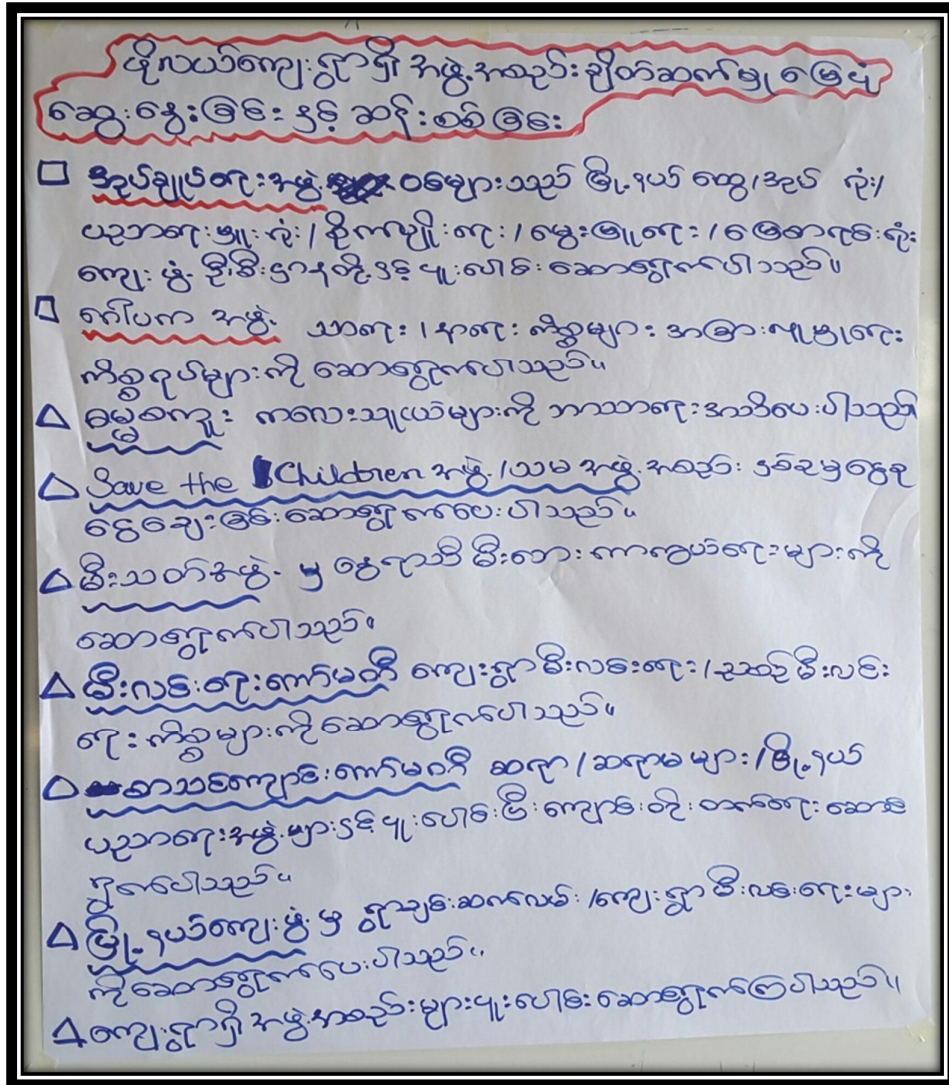 ဖိုလယ်ကျေးရွာရှိ အဖွဲ့အစည်းချိတ်ဆက်မှု မြေပုံ
ဆွေးနွေးခြင်း နှင့် ဆန်းစစ်ခြင်း
□ အုပ်ချုပ်ရေးအဖွဲ့ ဝင်များသည် မြို့နယ် ထွေ/အုပ် ရုံး/
ပညာရေးမှူးရုံး/စိုက်ပျိုးရေး/မွေးမြူရေး/မြေစာရင်းရုံး
ကျေးဖွံ့ဖြိုးဦးစီးဌာနတို့နှင့် ပူးပေါင်းဆောင်ရွက်ပါသည်။
□ ကိုပက အဖွဲ့ သာရေး/နာရေး ကိစ္စများ အခြားလူမှုရေး
ကိစ္စရပ်များကို ဆောင်ရွက်ပါသည်။
△ ဓမ္မစကူး ကလေးသူငယ်များကို ဘာသာရေးအသိပေးပါသည်
△ Save the Children အဖွဲ့/သမ အဖွဲ့အစည်း နှစ်ခုမှငွေစု
ငွေချေးခြင်းဆောင်ရွက်ပေးပါသည်။
△ မီးသတ်အဖွဲ့ မှ နွေရာသီ မီးဘေးကာကွယ်ရေးများကို
ဆောင်ရွက်ပါသည်။
△ မီးလင်းရေးကော်မတီ ကျေးရွာမီးလင်းရေး/ မီးလင်း
ရေးကိစ္စများကိုဆောင်ရွက်ပါသည်။
△ စာသင်ကျောင်းကော်မတီ ဆရာ/ဆရာမများ/မြို့နယ်
ပညာရေးအဖွဲ့များနှင့်ပူးပေါင်းပြီးကျောင်းတိုးတက်ရေးဆောင်
ရွက်ပါသည်။
△ မြို့နယ်ကျေးဖွံ့ မှ ရွာချင်းဆက်လမ်း/ကျေးရွာမီးလင်းရေးများ
ကိုဆောင်ရွက်ပေးပါသည်။
△ ကျေးရွာရှိ အဖွဲ့အစည်းများပူးပေါင်းဆောင်ရွက်ကြပါသည်။